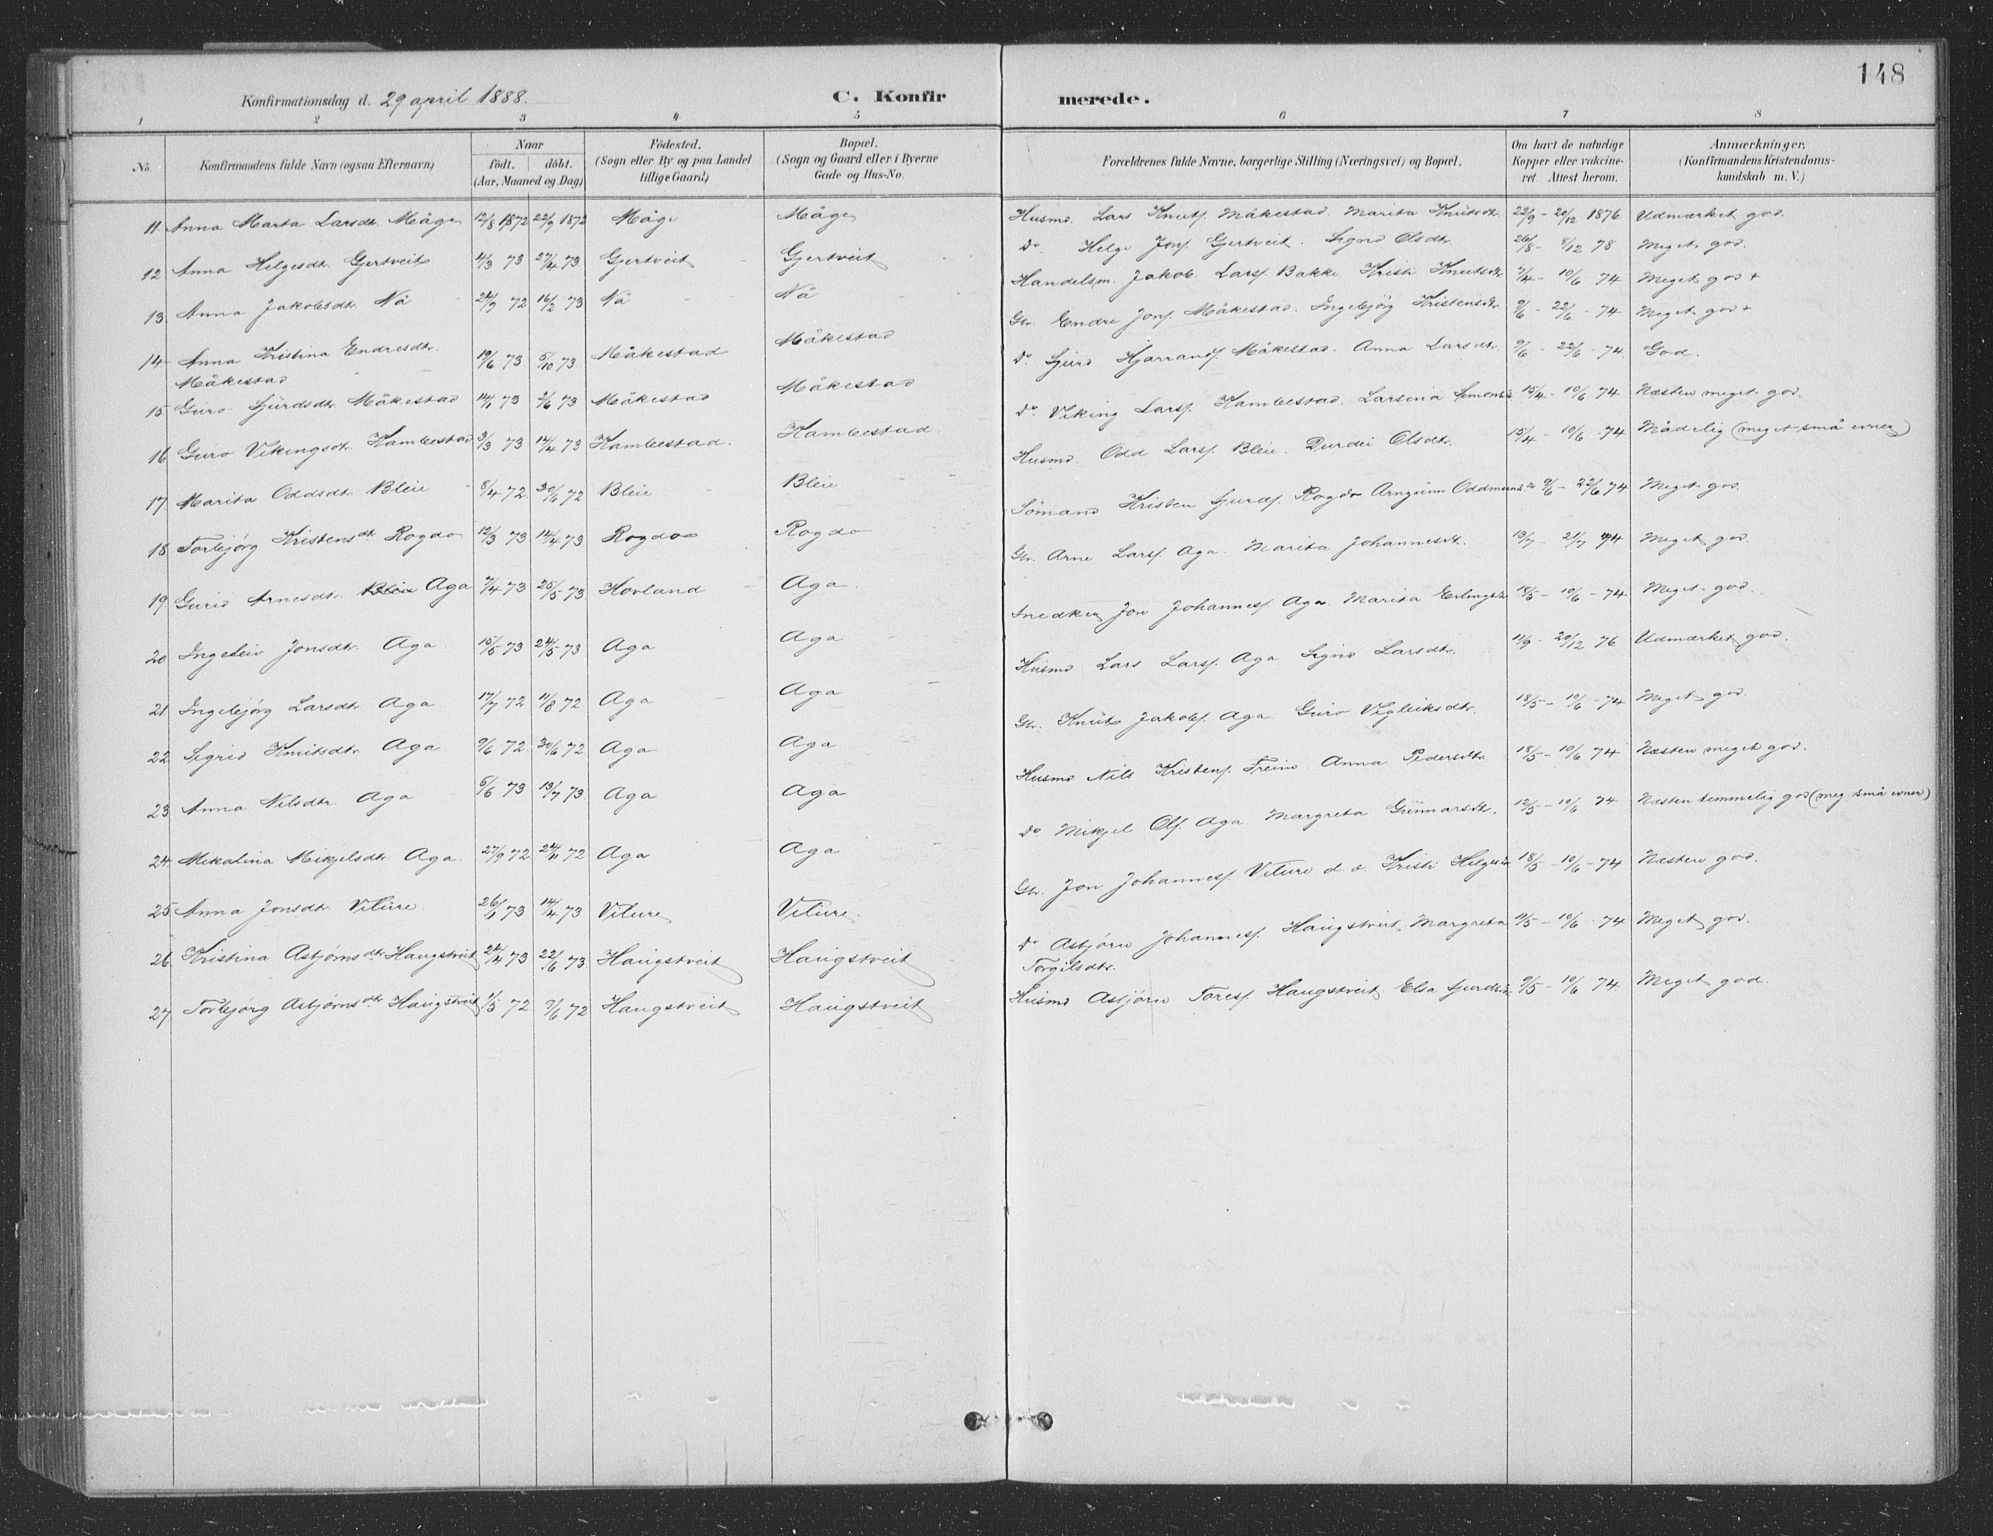 148
Konfirmationsdag d. 29 april 1888. C. Konfirmerede.
1 2 3 4 5 6 7 8
No. Konfirmandens fulde Navn (ogsaa Efternavn) Naar födt. döbt. (Aar, Maaned og Dag) Födested. (Sogn eller By og paa Landet tillige Gaard) Bopæl. (Sogn og Gaard eller i Byerne Gade og Hus-No. Forældrenes fulde Navne, borgerlige Stilling (Næringsvei) og Bopæl. Om havt de naturlige Kopper eller vakcineret. Attest herom. Anmærkninger. (Konfirmandens Kristendomskundskab m. V.)
11 Anna Marta Larsdtr. Måge 12/8 1872 22/9 1872 Måge Måge Husmd. Lars Knuts. Måkestad. Marita Knutsdtr. 22/9 - 20/12 1876 Udmærket god.
12 Anna Helgesdtr. Gjertveit 4/3 73 27/4 73 Gjertveit Gjertveit Do Helge Jons. Gjertveit. Signe Olsdtr. 26/8 - 8/12 78 Meget god.
13 Anna Jakobsdtr. Nå 72 16/2 73 Nå Nå Handelsm. Jakob Lars. Bakke. Kristi Knutsdtr 7/4 - 10/6 74 Meget god +
14 Anna Kristina Endresdtr. Måkestad 19/6 73 5/10 73 Måkestad Måkestad Gbr. Endre Jons. Måkestad. Ingebjørg Kristensdtr. 9/6 - 22/6 - 74 Meget god +
15 Guro Sjurdsdtr. Måkestad 73 2/6 73 Måkestad Måkestad Do Sjurd Hjarrands. Måkestad. Anna Larsdtr. 9/6 - 22/6 - 74. God.
16 Guro Vikingsdtr. Kambestad 3/3 73 14/4 73 Kambestad. Kambestad. Do Viking Lars. Kambestad. Larsina Simonsdtr 15/4 - 10/6 74 Næsten meget god.
17 Marita Oddsdtr. Bleie 8/4 72 30/6 72 Bleie Bleie Husmd. Odd Lars. Bleie. Durdei Olsdtr. 15/4 - 10/6 - 74 Mådelig (meget små evner)
18 Torbjørg Kristensdtr Rogde 12/3 73 14/4 73 Rogde Rogde Sömand Kristen Sjurds. Rogde Arngunn Oddmunds 9/6 - 22/6 74 Meget god.
19 Gurid Arnesdtr. Bleie Aga 7/4 73 25/5 73 Hovland Aga. Gbr. Arne Lars. Aga. Marita Johannesdtr. 13/7 - 21/7 74 Meget god.
20 Ingeleiv Jonsdtr. Aga 15/5 73 24/5 73 Aga Aga Snedker Jon Johannes. Aga. Marita Erlingsdtr 18/5 - 10/6 - 74 Meget god.
21 Ingebjørg Larsdtr. Aga 17/7 72 11/8 72 Aga Aga Husmd Lars Lars. Aga Signe Larsdtr. 11/9 - 20/12 76 Udmærket god.
22 Sigrid Knutsdtr. Aga 9/6 72 30/6 72 Aga Aga Gbr. Knut Jakobs. Aga. Guro Vigleiksdtr. 18/5 - 10/6 - 74 Meget god.
23 Anna Nilsdtr. Aga 6/6 73 13/7 73 Aga Aga Husmd Nils Kristens. Anna Pedersdtr 18/5 - 10/6 74 Næsten meget god.
24 Mikalina Mikjelsdtr. Aga. 27/9 72 24/11 72 Aga Aga Do Mikjel Ols. Aga. Margreta Gunnarsdtr. 12/5 - 10/6 74 Næsten temmelig god (meg. små evner)
25 Anna Jonsdtr. Viture 26/1 73 14/4 73 Viture Viture. Gbr. Jon Johannes. Viture d. e. Kristi Helgesdtr 18/5 - 10/6 - 74 Næsten god.
26 Kristina Asbjørnsdtr Haugstveit 24/4 73 22/6 73 Haugstveit Haugstveit Do Asbjørn Johannes. Haugstveit. Margreta Torgilsdtr. 11/5 - 10/6 - 74 Meget god.
27 Torbjørg Asbjørnsdtr Haugstveit 1/5 72 9/6 72 Haugstveit Haugstveit Husmd Asbjørn Tores. Haugstveit Elsa Sjurdsdtr 9/5 - 10/6 74. Meget god.